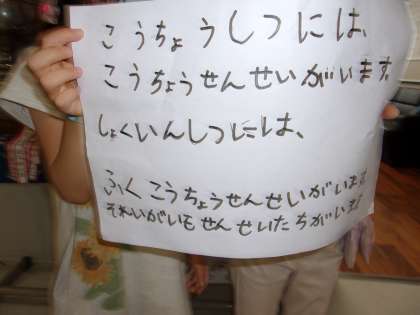 こうちょうしつには、
こうちょうせんせいがいます。
しょくいんしつには、
ふくこうちょうせんせいがいます
それいがいもせんせいたちがいます